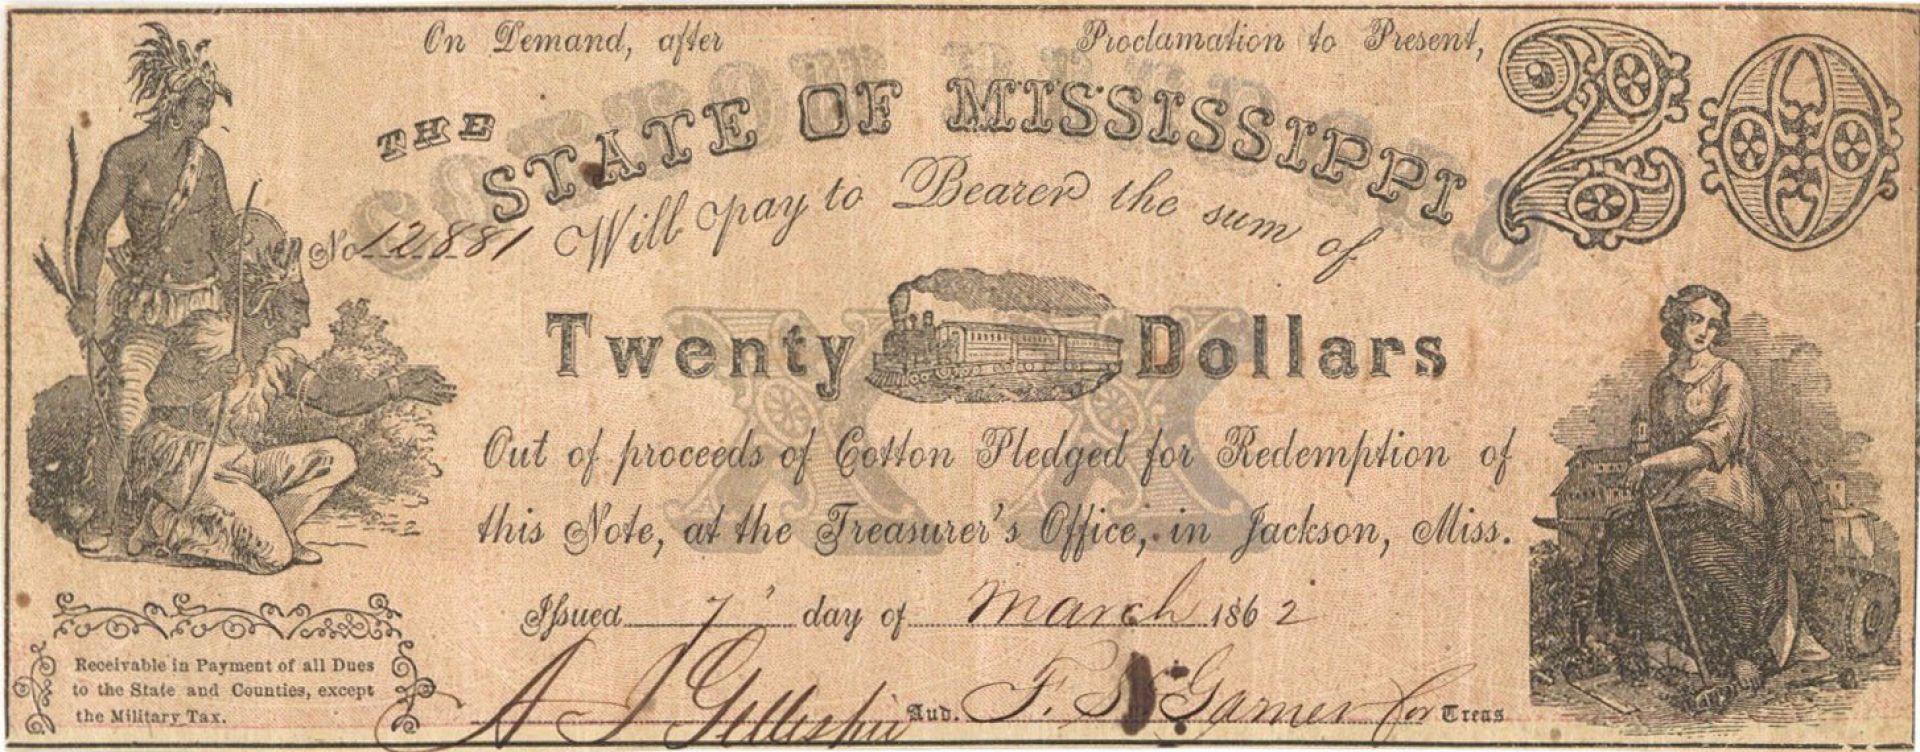 On Demand, after Proclamation to Present,
20
THE STATE OF MISSISSIPPI
No 12881 Will pay to Bearer the sum of
Twenty Dollars
XX
Out of proceeds of Cotton Pledged for Redemption of
this Note, at the Treasurer's Office, in Jackson, Miss.
Issued 7 day of March 1862
A J Gillespie Aud. F. S. Garner for Treas
Receivable in Payment of all Dues
to the State and Counties, except
the Military Tax.